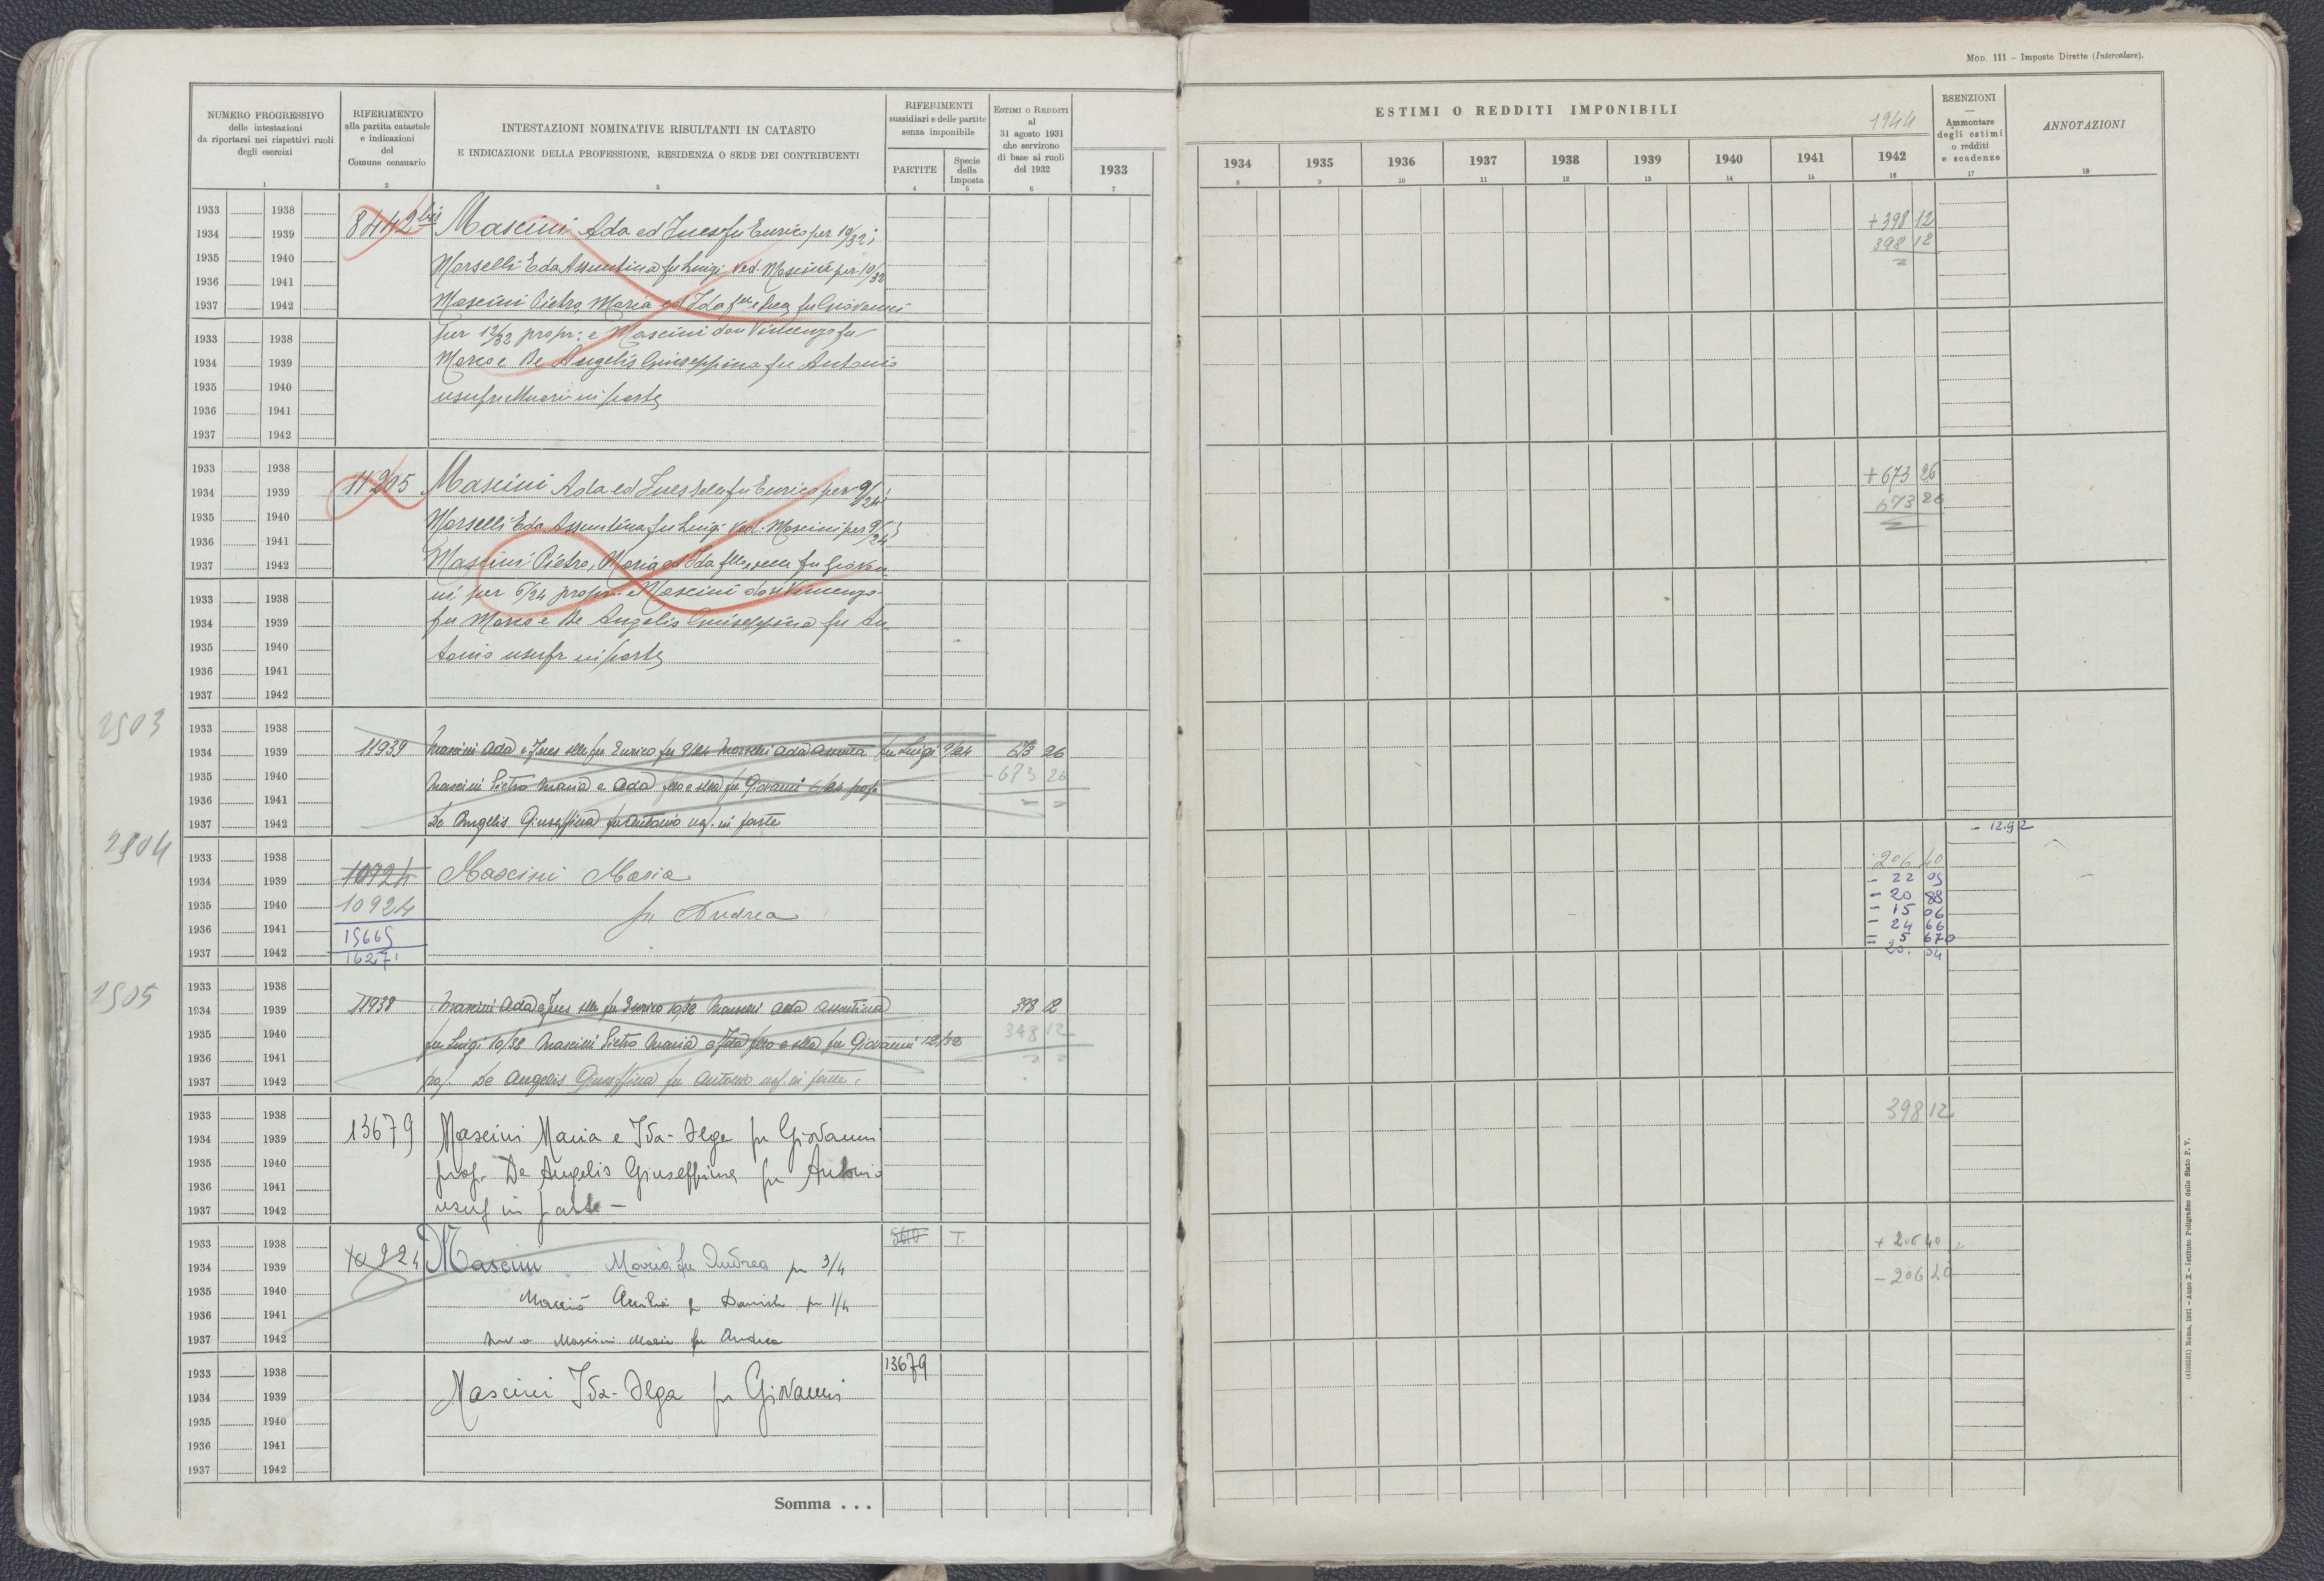 Mod. 111 - Imposte Dirette (Intercalare).
NUMERO PROGRESSIVO
delle intestazioni
da riportarsi nei rispettivi ruoli
degli esercizi
1
RIFERIMENTO
alla partita catastale
e indicazioni
del
Comune censuario
2
INTESTAZIONI NOMINATIVE RISULTANTI IN CATASTO
E INDICAZIONE DELLA PROFESSIONE, RESIDENZA O SEDE DEI CONTRIBUENTI
3
RIFERIMENTI
sussidiari e delle partite
senza imponibile
PARTITE
4
Specie
della
Imposta
5
Estimi o Redditi
al
31 agosto 1931
che servirono
di base ai ruoli
del 1932
6
1933
7
ESTIMI O REDDITI IMPONIBILI
1944
1934 1935 1936 1937 1938 1939 1940 1941 1942
8 9 10 11 12 13 14 15 16
ESENZIONI
Ammontare
degli estimi
o redditi
e scadenze
17
ANNOTAZIONI
18
1933 1938
1934 1939
1935 1940
1936 1941
1937 1942
8442 bis
Mascini Ada ed Ines fu Enrico per 10/32;
Morselli Eda Assuntina fu Luigi ved. Mascini per 10/32
Mascini Pietro, Maria ed Ida flli e sua fu Giovanni
+ 398 12
398 12
1933 1938
1934 1939
1935 1940
1936 1941
1937 1942
per 12/32 propr: e Mascini don Vincenzo fu
Marco e De Angelis Giuseppina fu Antonio
usufruttuari in parte
1933 1938
1934 1939
1935 1940
1936 1941
1937 1942
11205
Mascini Ada ed Ines selle fu Enrico per 9/24;
Morselli Eda Assuntina fu Luigi ved. Mascini per 9/24;
Mascini Pietro, Maria ed Ida flli e selle fu Giovan
+ 673 26
673 26
1933 1938
1934 1939
1935 1940
1936 1941
1937 1942
ni per 6/24 propr. e Mascini don Vincenzo
fu Marco e De Angelis Giuseppina fu An
tonio usufr in parte
2903
1933 1938
1934 1939
1935 1940
1936 1941
1937 1942
11939
Mascini Ada e Ines selle fu Enrico per 9/24 Morselli Ada Assunta fu Luigi 9/24
Mascini Pietro Maria e Ada fllo e slla fu Giovanni 6/24 prop
De Angelis Giuseppina fu Antonio usf. in parte
673 26
- 673 26
- 12.92
2904
1933 1938
1934 1939
1935 1940
1936 1941
1937 1942
10924
10924
15665
16271
Mascini Maria
fu Andrea
206 40
- 22 05
- 20 88
- 15 06
- 24 66
= 5 670
20. 04
2905
1933 1938
1934 1939
1935 1940
1936 1941
1937 1942
11938
Mascini Ada e Ines slle fu Enrico 10/32 Ada Assuntina
fu Luigi 10/32 Mascini Pietro Maria e Ida fllo e slla fu Giovanni 12/32
prop. De Angelis Giuseppina fu Antonio usf. in parte.
398 12
398 12
1933 1938
1934 1939
1935 1940
1936 1941
1937 1942
13679
Mascini Maria e Ida-Olga fu Giovanni
prop. De Angelis Giuseppina fu Antonio
usuf in parte -
398 12
1933 1938
1934 1939
1935 1940
1936 1941
1937 1942
10924
Mascini Maria fu Andrea per 3/4
fu per 1/4
Mascini Maria fu Andrea
5610 T.
+ 206 40
- 206 40
1933 1938
1934 1939
1935 1940
1936 1941
1937 1942
Mascini Ida-Olga fu Giovanni
13679
Somma . . .
(4103551) Roma, 1931 - Anno X - Istituto Poligrafico dello Stato P. V.